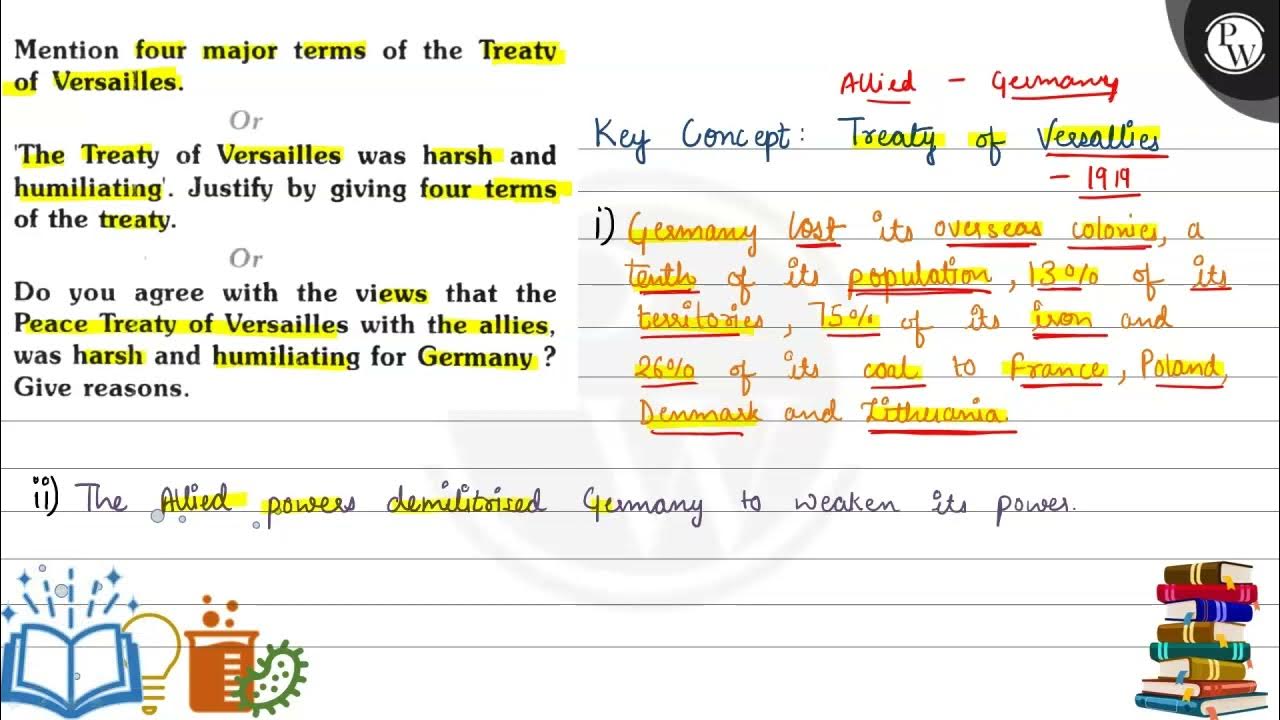 Mention four major terms of the Treaty
of Versailles.
Or
'The Treaty of Versailles was harsh and
humiliating'. Justify by giving four terms
of the treaty.
Or
Do you agree with the views that the
Peace Treaty of Versailles with the allies,
was harsh and humiliating for Germany ?
Give reasons.
PW
Allied - Germany
Key Concept: Treaty of Versallies
- 1919
i) Germany lost its overseas colonies, a
tenth of its population, 13% of its
territories, 75% of its iron and
26% of its coal to France, Poland,
Denmark and Lithuania.
ii) The Allied powers demilitrised Germany to weaken its power.